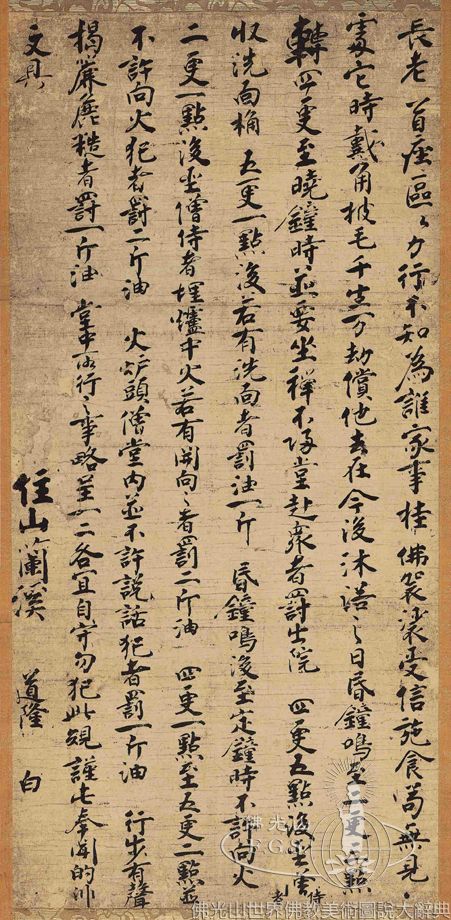 長老首座區〻力行不知為誰家事掛佛袈裟受信施食苟無見
處它時戴角披毛千生万劫償他去在今後沐浴之日昏鐘鳴至二更三點
轉四更至曉鐘時並要坐禪不歸堂赴衆者罰出院 四更五點後圣僧侍者
収洗面桶 五更一點後若有洗面者罰油一斤 昏鐘鳴後至定鐘時不許向火
二更一點後圣僧侍者埋爐中火若有開向之者罰二斤油 四更一點至五更二點並
不許向火犯者罰二斤油 火炉頭僧堂内並不許説話犯者罰一斤油 行步有聲
揭簾麁糙者罰一斤油 堂中所行之事略呈一二各宜自守勿犯此規謹此奉聞的非
文具
住山蘭溪 道隆 白
佛光山
FGS
佛光山世界佛教美術圖說大辭典